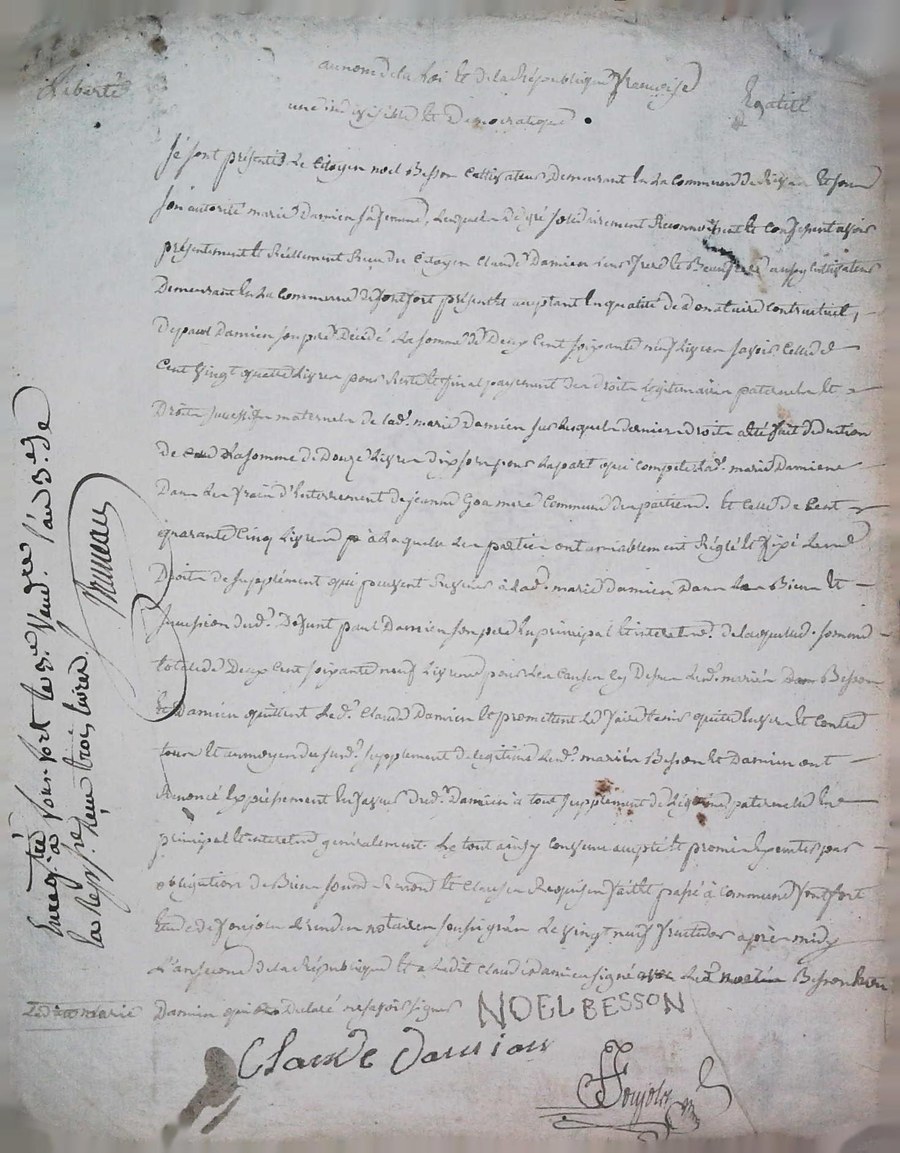 Liberté
au nom de la Loi et de la République françoise
Egalité
une indivisible et Democratique
Se sont présentés Le Citoyen noel Besson Cultivateur Demeurant En La Commune de et sous
son autorité marie Damien sa femme, Lesquels de gré solidairement Reconnoissent et Confessent avoir
présentement et Réellement Reçu du Citoyen Claude Damien Leur frere et Beaufrere aussy Cultivateur
Demeurant En La Commune de fontfort présent et acceptant En qualité de donataire contractuel,
De paul Damien son pere Décédé La somme De Deux Cent soixante neuf Livres savoir Celle de
Cent vingt quatre Livres pour Reste et final payement des droits Légitimaires paternels et
Droits successifs maternels de lade. marie Damien sur Lesquels derniers droits a été fait déduction
De La somme de Douze Livres dix sols pour La part qui compete lad. marie Damiens
Dans Les frais d'Enterrement de jeanne Commune des parties. Et Celle de Cent
quarante Cinq Livres à Laquelle Les parties ont amiablement Réglé et fixé Les
Droits de supplément qui peuvent Revenir à lad. marie damien Dans Les Biens et
succession dud. Défunt paul Damien son pere En principal et interets. de laquelle somme
totale de Deux Cent soixante neuf Livres pour Les Causes Cy Dessus Lesd. mariés Besson
et Damien quittent Led. Claude Damien et promettent Le faire tenir quitte Envers et Contre
tous et au moyen du susd. supplement de legitime Lesd. mariés Besson et Damien ont
Renoncé Expréssement En faveur dud. Damien à tout supplement de Légitime paternelle En
principal et interets et généralement. Le tout ainsy Convenu accepté et promis Executer par
obligation de Biens et Clauses Requises fait et passé à Commune fontfort
Etude de Ponjols L'un des notaires soussignés Le vingt neuf fructidor après midy
L'an second de la République Et a Ledit Claude Damien signé Led. Besson
Lad. marie Damien qui a Déclaré ne savoir signer
NOEL BESSON
Claude damian
Ponjols
Enregistré à font-fort le 3e. Vend.re l'an 3e. de
la Rep. fse. Reçu trois livres.